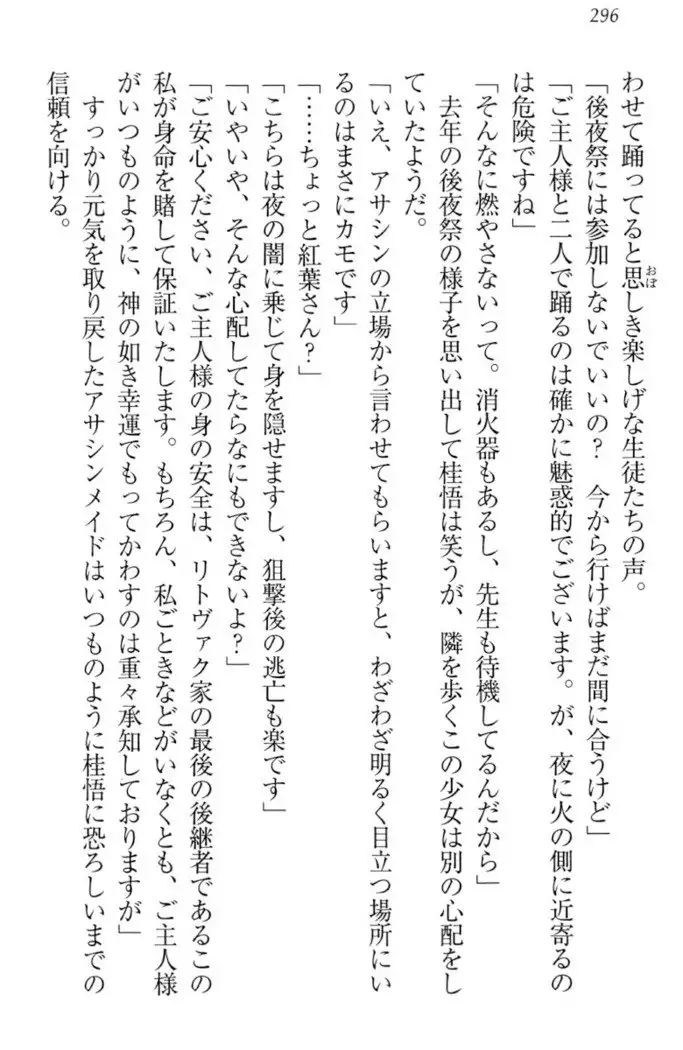 296
わせて踊ってると思しき楽しげな生徒たちの声。
おぼ
「後夜祭には参加しないでいいの？　今から行けばまだ間に合うけど」
「ご主人様と二人で踊るのは確かに魅惑的でございます。が、夜に火の側に近寄るの
は危険ですね」
「そんなに燃やさないって。消火器もあるし、先生も待機してるんだから」
　去年の後夜祭の様子を思い出して桂悟は笑うが、隣を歩くこの少女は別の心配をし
ていたようだ。
「いえ、アサシンの立場から言わせてもらいますと、わざわざ明るく目立つ場所にい
るのはまさにカモです」
「……ちょっと紅葉さん？」
「こちらは夜の闇に乗じて身を隠せますし、狙撃後の逃亡も楽です」
「いやいや、そんな心配してたらなにもできないよ？」
「ご安心ください、ご主人様の身の安全は、リトヴァク家の最後の後継者であるこの
私が身命を賭して保証いたします。もちろん、私ごときなどがいなくとも、ご主人様
がいつものように、神の如き幸運でもってかわすのは重々承知しておりますが」
　すっかり元気を取り戻したアサシンメイドはいつものように桂悟に恐ろしいまでの
信頼を向ける。